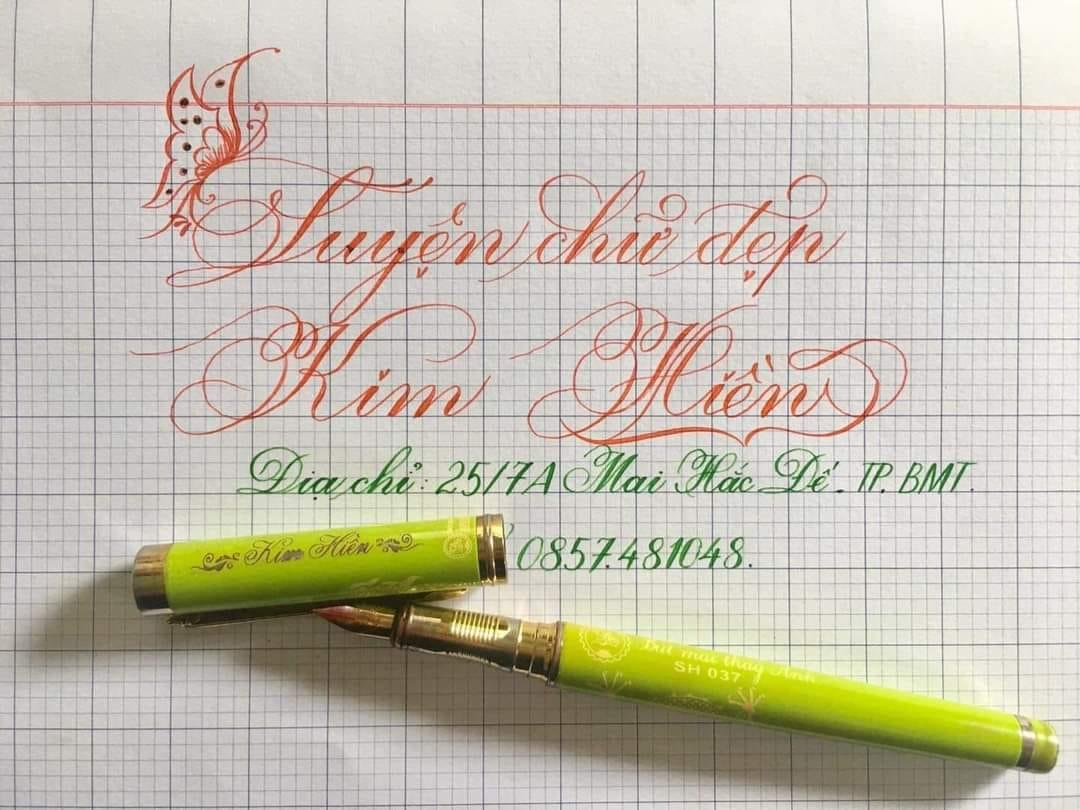 Luyện chữ đẹp
Kim Hiền
Địa chỉ: 25/7A Mai Hắc Đế. TP. BMT.
0857.481048.
Kim Hiền
Bút mài thầy Ánh
SH 037